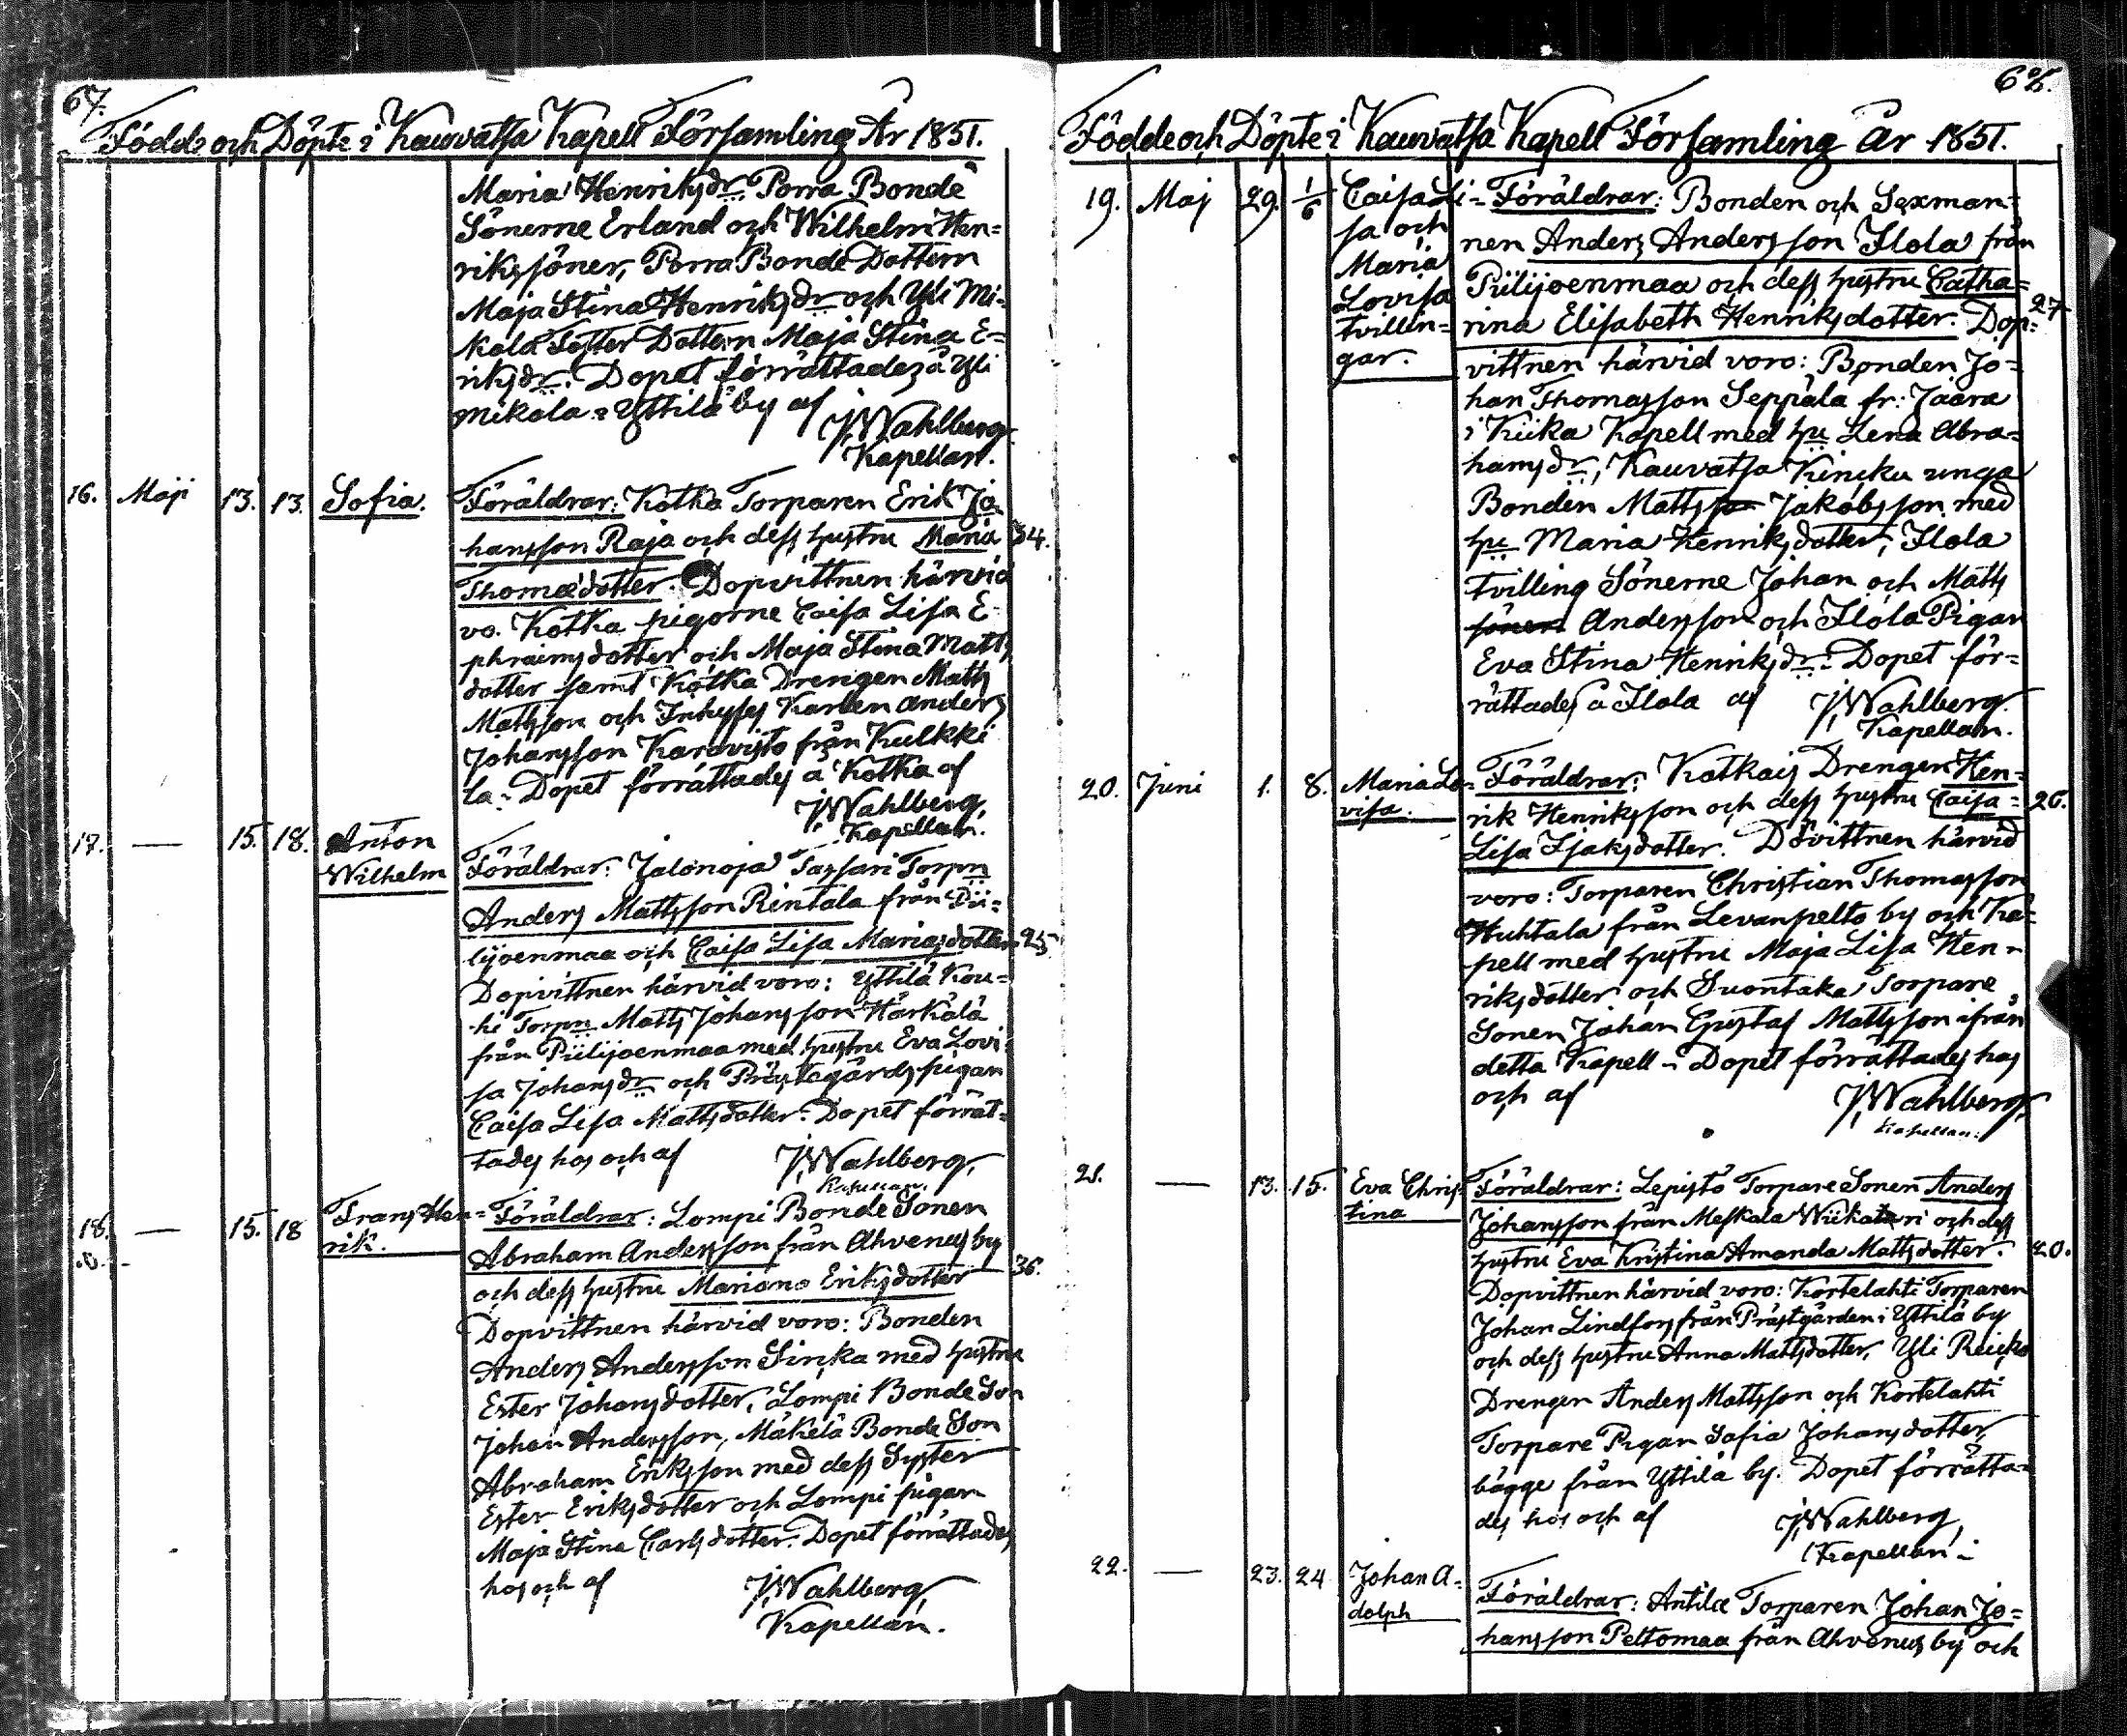 67.
Födde och Döpte i Kauvatsa Kapell Församling År 1851.
Maria Henriksdr Porra Bonde
Sönerne Erland och Wilhelm Hen=
rikssöner, Porra Bonde Dottern
Maja Stina Henriksdr och Yli Mi-
kola Dottern Maja Stina E=
riksdr. Dopet förrättades å Yli
Mikola i Yttilä by af
JWahlberg
Kapellan.
16. Maji 13. 13. Sofia. Föräldrar: Kotka Torparen Erik Jo-
hansson Raja och dess hustru Maria 34.
Thomædotter. Dopvittnen härvid
vo. Kotka pigorne Caisa Lisa E-
phraimsdotter och Maja Stina Matts
dotter samt Kotka Drengen Matts
Mattsson och Inhyses Karlen Anders
Johansson Karavisto från Kulkki
la. Dopet förrättades å Kotka af
JWahlberg,
Kapellan.
17. — 15. 18. Anton
Wilhelm Föräldrar: Jalonoja Torpn
Anders Mattsson Rintala från Pii-
lijoenmaa och Caisa Lisa Mariasdotter 25
Dopvittnen härvid voro: Yttilä Kou-
hi Torpn Matts Johansson Härkälä
från Piilijoenmaa med hustru Eva Lovi-
sa Johansdr och Prästegårds pigan
Caisa Lisa Mattsdotter. Dopet förrät-
tades hos och af JWahlberg,
Kapellan.
18. — 15. 18 Frans Hen= Föräldrar: Lompi Bonde Sonen
rik. Abraham Andersson från Ahvenus by
och dess hustru Mariana Eriksdotter 36.
Dopvittnen härvid voro: Bonden
Anders Andersson Sirka med hustru
Ester Johansdotter, Lompi Bonde Son
Johan Andersson, Mäkelä Bonde Son
Abraham Eriksson med dess Syster
Ester Eriksdotter och Lompi pigan
Maja Stina Carlsdotter. Dopet förrättades
hos och af JWahlberg,
Kapellan.
68.
Födde och Döpte i Kauvatsa Kapell Församling år 1851.
19. Maj 29. 1/6 Caisa Li= Föräldrar: Bonden och Sexman=
sa och nen Anders Andersson Ilola från
Maria Piilijoenmaa och dess hustru Catha=
Lovisa rina Elisabeth Henriksdotter. Dop= 27
tvillin=
gar. vittnen härvid voro: Bonden Jo=
han Thomasson Seppälä fr: Jaara
i Kiika Kapell med hu Lena Abra=
hamsdr, Kauvatsa unga
Bonden Matts Jakobsson med
hu Maria Henriksdotter, Ilola
tvilling Sönerne Johan och Matts
söner Andersson och Ilola Pigan
Eva Stina Henriksdr. Dopet för=
rättades å Ilola af JWahlberg
Kapellan.
20. Juni 1. 8. Maria Lo= Föräldrar: Katkais Drengen Hen=
visa. rik Henriksson och dess hustru Caisa= 26.
Lisa Isaksdotter. Dövittnen härvid
voro: Torparen Christian Thomasson
Huhtala från Levanpelto by och Ka=
pell med hustru Maja Lisa Hen=
riksdotter och Suontaka Torpare
Sonen Johan Gustaf Mattsson ifrån
detta Kapell. Dopet förrättades hos
och af JWahlberg,
Kapellan.
21. — 13. 15. Eva Chris= Föräldrar: Lepistö Torpare Sonen Anders
tina Johansson från Meskala Wiikatari och dess
hustru Eva Kristina Amanda Mattsdotter. 20.
Dopvittnen härvid voro: Kortelahti Torparen
Johan Lindfors från Prästgården i Yttilä by
och dess hustru Anna Mattsdotter, Yli
Drengen Anders Mattsson och Kortelahti
Torpare Pigan Sofia Johansdotter,
bägge från Yttilä by. Dopet förrätta=
des hos och af JWahlberg,
Kapellan.
22. — 23. 24 Johan A=
dolph Föräldrar: Antila Torparen Johan Jo=
hansson Peltomaa från Ahvenus by och